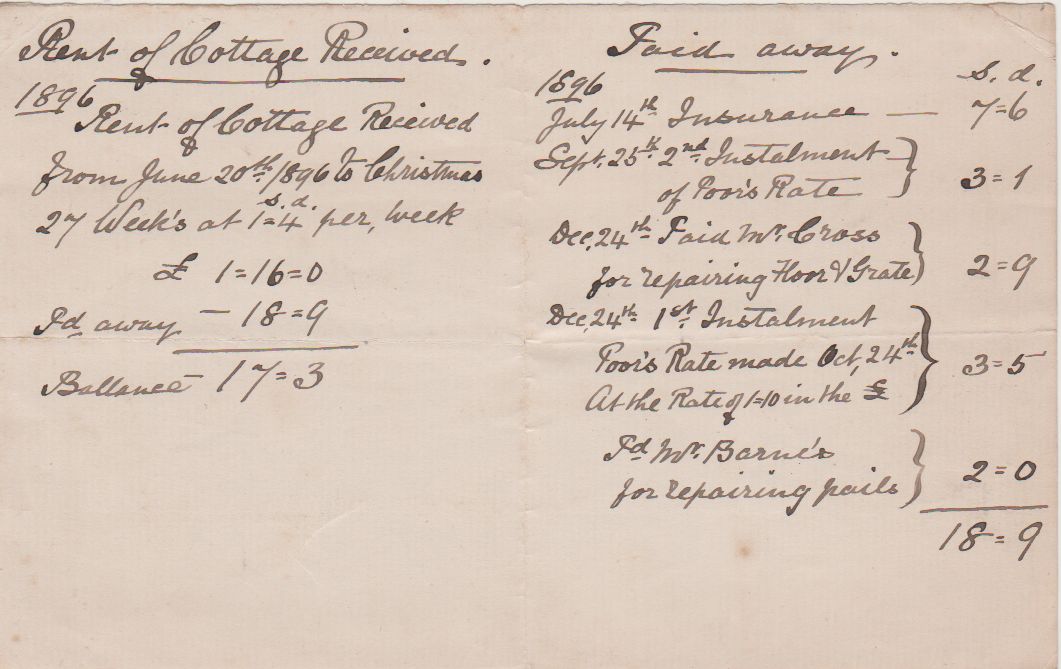 Rent of Cottage Received.
1896
Rent of Cottage Received
from June 20th /1896 to Christmas
s. d.
27 Week's at 1=4 per, week
£ 1=16=0
Pd away — 18=9
Ballance — 17=3
Paid away.
1896
s. d.
July 14th Insurance — 7=6
Sept. 25th 2nd Instalment
of Poor's Rate 3=1
Dec, 24th Paid Mr. Cross
for repairing Floor & Grate 2=9
Dec, 24th 1st Instalment
Poor's Rate made Oct, 24th
At the Rate of 1=10 in the £ 3=5
Pd Mr. Barne's
for repairing pails 2=0
18=9